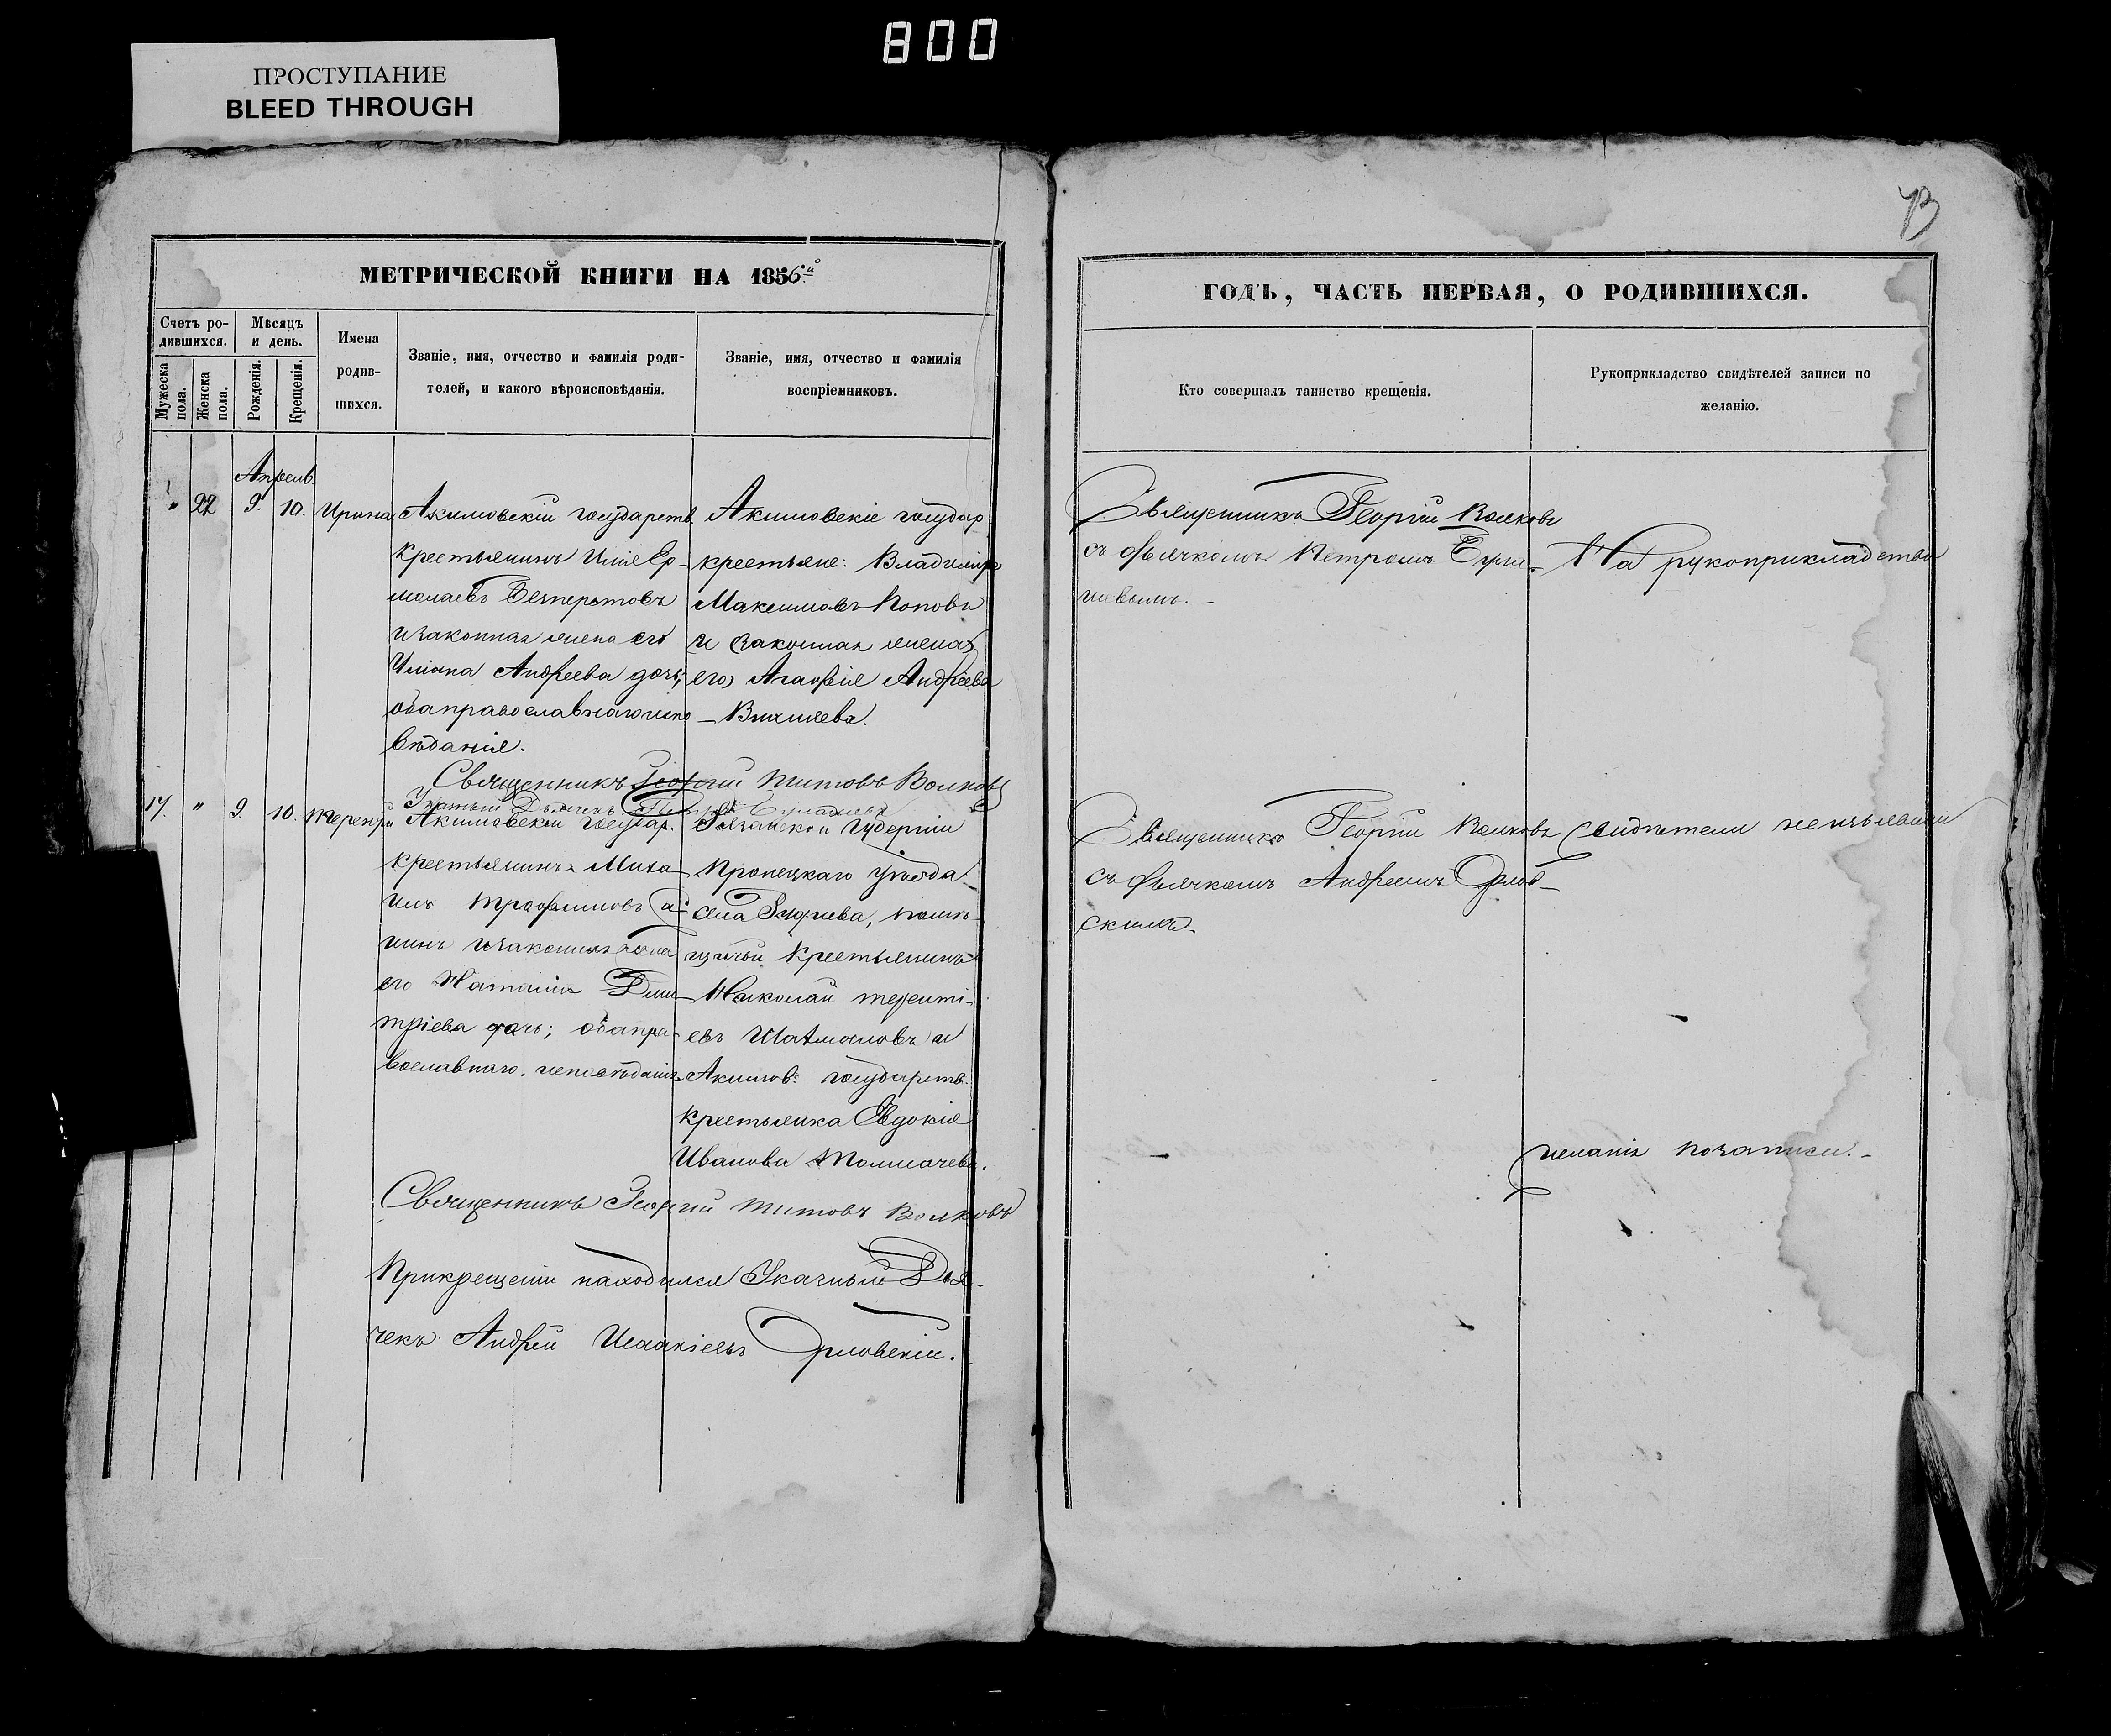 800
ПРОСТУПАНИЕ
BLEED THROUGH
МЕТРИЧЕСКОЙ КНИГИ НА 1856й
Счетъ ро-
дившихся.
Мѣсяцъ
и день.
Мужеска
пола.
Женска
пола.
Рожденія.
Крещенія.
Имена
родив-
шихся.
Званіе, имя, отчество и фамилія роди-
телей, и какого вѣроисповѣданія.
Званіе, имя, отчество и фамилія
воспріемниковъ.
Апрель
" 22 9. 10. Ирина
Акимовскій государств
крестьянинъ Илія Ер-
молаевъ
и законная жена его
Андреева дочь;
оба православнаго испо
вѣданія.
Акимовскіе государ
крестьяне: Владиміръ
Максимовъ Поповъ
и законная жена
его Агафія Андреева
Священникъ Георгій Титовъ Волковъ
17. " 9. 10. Терентій
Акимовскій государ.
крестьянинъ Миха-
илъ Трофимовъ
и законная жена
его Наталія Дми-
тріева дочь; оба пра-
вославнаго исповѣданія
Рязанской Губерніи
Пронскаго уѣзда
села помѣ-
щичій крестьянинъ
Николай Терентіи-
евъ и
Акимов: государств:
крестьянка Евдокія
Иванова Толмачева.
Священникъ Георгій Титовъ Волковъ
При крещеніи находился Указный Дья-
чекъ Андрей Исаакіевъ Орловскій.
73
ГОДЪ, ЧАСТЬ ПЕРВАЯ, О РОДИВШИХСЯ.
Кто совершалъ таинство крещенія.
Рукоприкладство свидѣтелей записи по
желанію.
Священникъ Георгій Волковъ
съ дьячкомъ Петромъ
На рукоприкладство
Священникъ Георгій Волковъ
съ дьячкомъ Андреемъ Орлов-
скимъ.
свидѣтели не изъявили
желанія по записи.